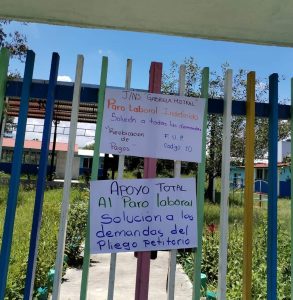 J/NS GABRIELA MISTRAL
Paro Laboral Indefinido
Solución a todas las demandas
Pagos
APOYO TOTAL
Al Paro laboral
Solución a las
demandas del
Pliego Petitorio